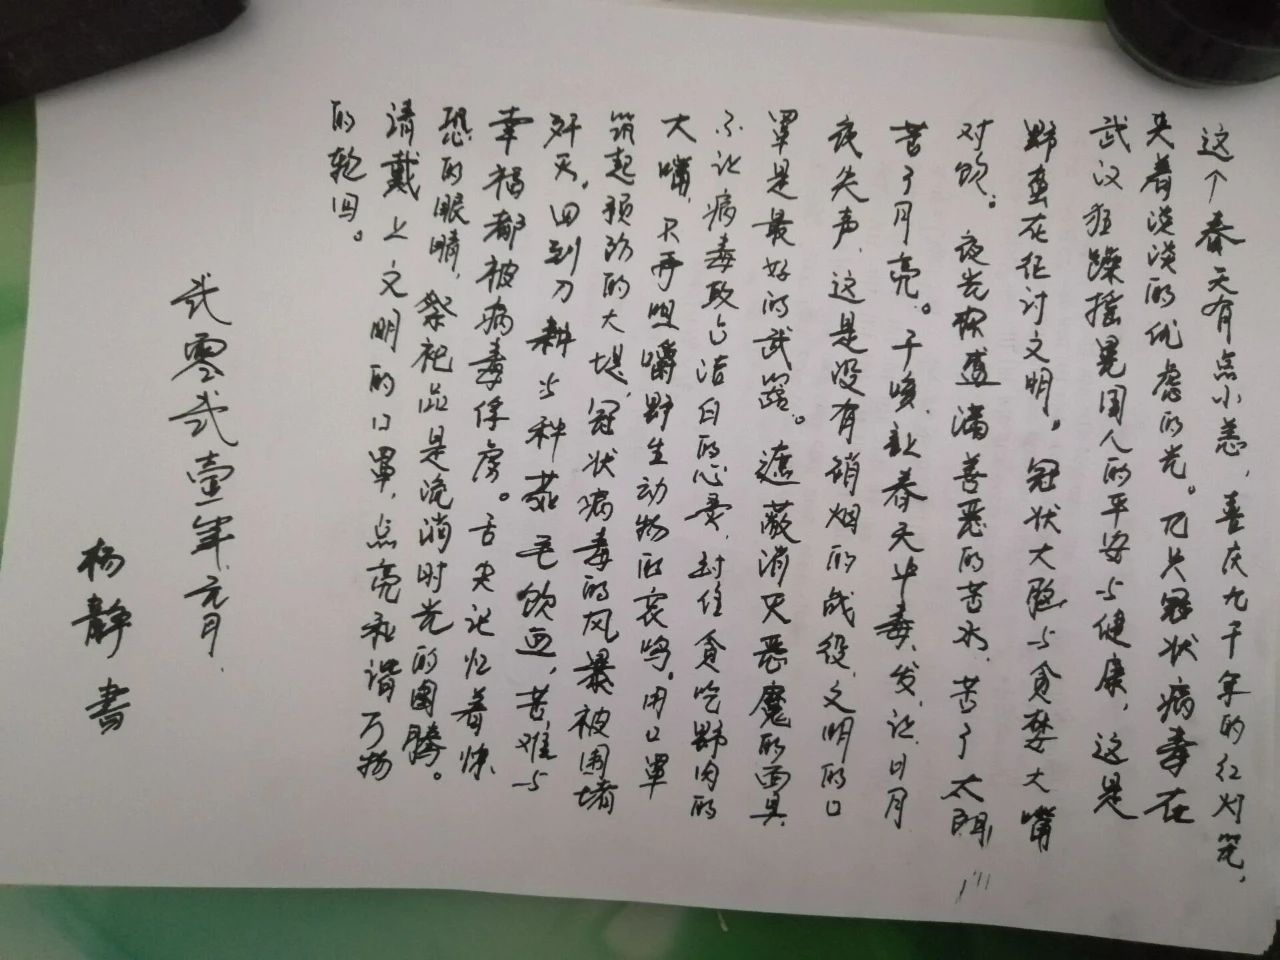 这个春天有点小恙，喜庆九千年的红灯笼，
夹着淡淡的忧虑的光。几只冠状病毒在
武汉狂躁摇晃国人的平安与健康，这是
野蛮在征讨文明。冠状大脸与贪婪大嘴
对饮。夜光杯盛满善恶的苦水，苦了太阳
苦了月亮。干咳，让春天中毒、发，让日月
夜失声，这是没有硝烟的战役，文明的口
罩是最好的武器。遮蔽消灭恶魔的面具
不让病毒攻占洁白的心灵，封住贪吃野肉的
大嘴，不再咀嚼野生动物的哀鸣。用口罩
筑起预防的大堤，冠状病毒的风暴被围堵
歼灭，回到刀耕与种茹毛饮血，苦难与
幸福都被病毒俘虏。舌尖记忆着惊
恐的眼睛，祭祀品是流淌时光的图腾。
请戴上文明的口罩，点亮和谐万物
的轮回。
贰零贰壹年元月
杨静书